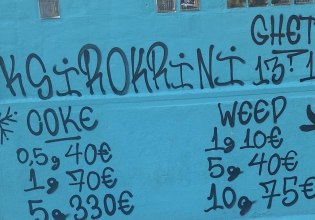 GHET
KSiROKRiNi 13'1
COKE
0,5g 40€
1g 70€
5g 330€
WEED
1g 10€
5g 40€
10g 75€